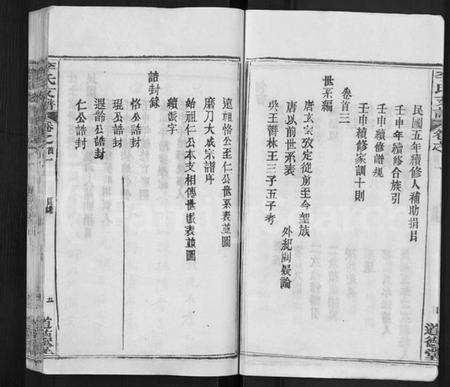 民國五年續修人補助捐目
壬申年續修合族引
壬申續修譜規
壬申續修家訓十則
卷首三
世系編
唐玄宗欽定從前至今望族
唐以前世系表 外紀闕疑論
吳王諱林王三子五子考
道德堂
遠祖恪公至仁公世系表並圖
磨刀大成宗譜序
始祖仁公本支相傳世系表並圖
續派字
誥封錄
恪公誥封
琨公誥封
遐齡公誥封
仁公誥封
李氏支譜 卷之首一 目錄 五 道德堂